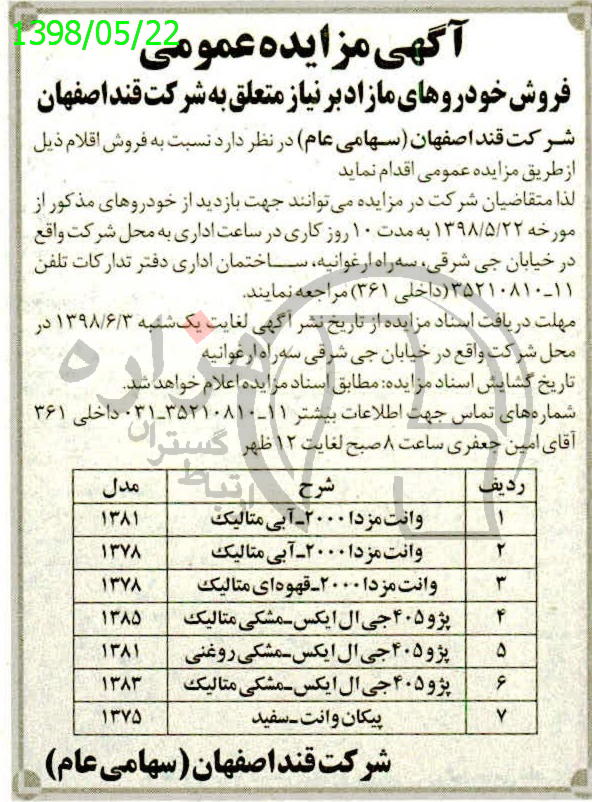 1398/05/22
آگهی مزایده عمومی
فروش خودروهای مازاد بر نیاز متعلق به شرکت قند اصفهان
شرکت قند اصفهان (سهامی عام) در نظر دارد نسبت به فروش اقلام ذیل
از طریق مزایده عمومی اقدام نماید
لذا متقاضیان شرکت در مزایده می‌توانند جهت بازدید از خودروهای مذکور از
مورخه ۱۳۹۸/۵/۲۲ به مدت ۱۰ روز کاری در ساعت اداری به محل شرکت واقع
در خیابان جی شرقی، سه‌راه ارغوانیه، ساختمان اداری دفتر تدارکات تلفن
۱۱-۳۵۲۱۰۸۱۰ (داخلی ۳۶۱) مراجعه نمایند.
مهلت دریافت اسناد مزایده از تاریخ نشر آگهی لغایت یک‌شنبه ۱۳۹۸/۶/۳ در
محل شرکت واقع در خیابان جی شرقی سه‌راه ارغوانیه
تاریخ گشایش اسناد مزایده: مطابق اسناد مزایده اعلام خواهد شد.
شماره‌های تماس جهت اطلاعات بیشتر ۱۱-۳۵۲۱۰۸۱۰-۰۳۱ داخلی ۳۶۱
آقای امین جعفری ساعت ۸ صبح لغایت ۱۲ ظهر
هزاره
گستران
ارتباط
ردیف شرح مدل
۱ وانت مزدا ۲۰۰۰-آبی متالیک ۱۳۸۱
۲ وانت مزدا ۲۰۰۰-آبی متالیک ۱۳۷۸
۳ وانت مزدا ۲۰۰۰-قهوه‌ای متالیک ۱۳۷۸
۴ پژو ۴۰۵ جی ال ایکس-مشکی متالیک ۱۳۸۵
۵ پژو ۴۰۵ جی ال ایکس-مشکی روغنی ۱۳۸۱
۶ پژو ۴۰۵ جی ال ایکس-مشکی متالیک ۱۳۸۳
۷ پیکان وانت-سفید ۱۳۷۵
شرکت قند اصفهان (سهامی عام)